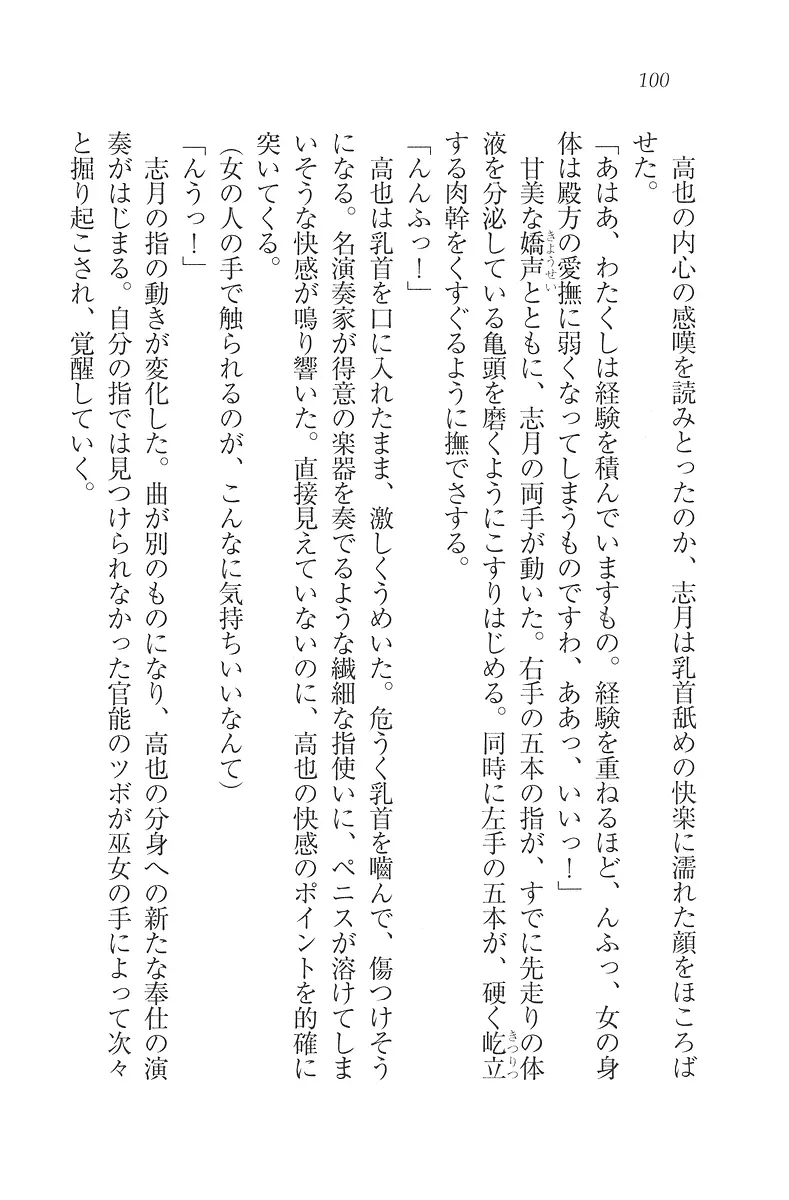 100
高也の内心の感嘆を読みとったのか、志月は乳首舐めの快楽に濡れた顔をほころば
せた。
「あはあ、わたくしは経験を積んでいますもの。経験を重ねるほど、んふっ、女の身
体は殿方の愛撫に弱くなってしまうものですわ、ああっ、いいっ！」
甘美な嬌声とともに、志月の両手が動いた。右手の五本の指が、すでに先走りの体
液を分泌している亀頭を磨くようにこすりはじめる。同時に左手の五本が、硬く屹立
する肉幹をくすぐるように撫でさする。
「んんふっ！」
高也は乳首を口に入れたまま、激しくうめいた。危うく乳首を嚙んで、傷つけそう
になる。名演奏家が得意の楽器を奏でるような繊細な指使いに、ペニスが溶けてしま
いそうな快感が鳴り響いた。直接見えていないのに、高也の快感のポイントを的確に
突いてくる。
（女の人の手で触られるのが、こんなに気持ちいいなんて）
「んうっ！」
志月の指の動きが変化した。曲が別のものになり、高也の分身への新たな奉仕の演
奏がはじまる。自分の指では見つけられなかった官能のツボが巫女の手によって次々
と掘り起こされ、覚醒していく。
きょうせい
きつりつ